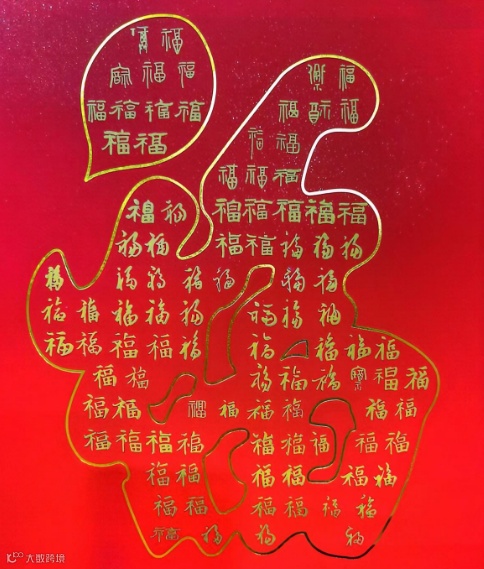 福
福 福 福
福 福 福 福 福 福
福 福 福 福
福 福 福
福 福 福 福 福 福 福
福 福 福 福 福 福 福
福 福 福 福 福 福 福
福 福 福 福 福 福 福 福
福 福 福 福 福 福 福 福 福
福 福 福 福 福 福 福
福 福 福 福 福 福 福
福 福 福 福 福 福 福 福 福
福 福 福 福 福 福
福 福 福 福 福 福
福 福 福
大数跨境